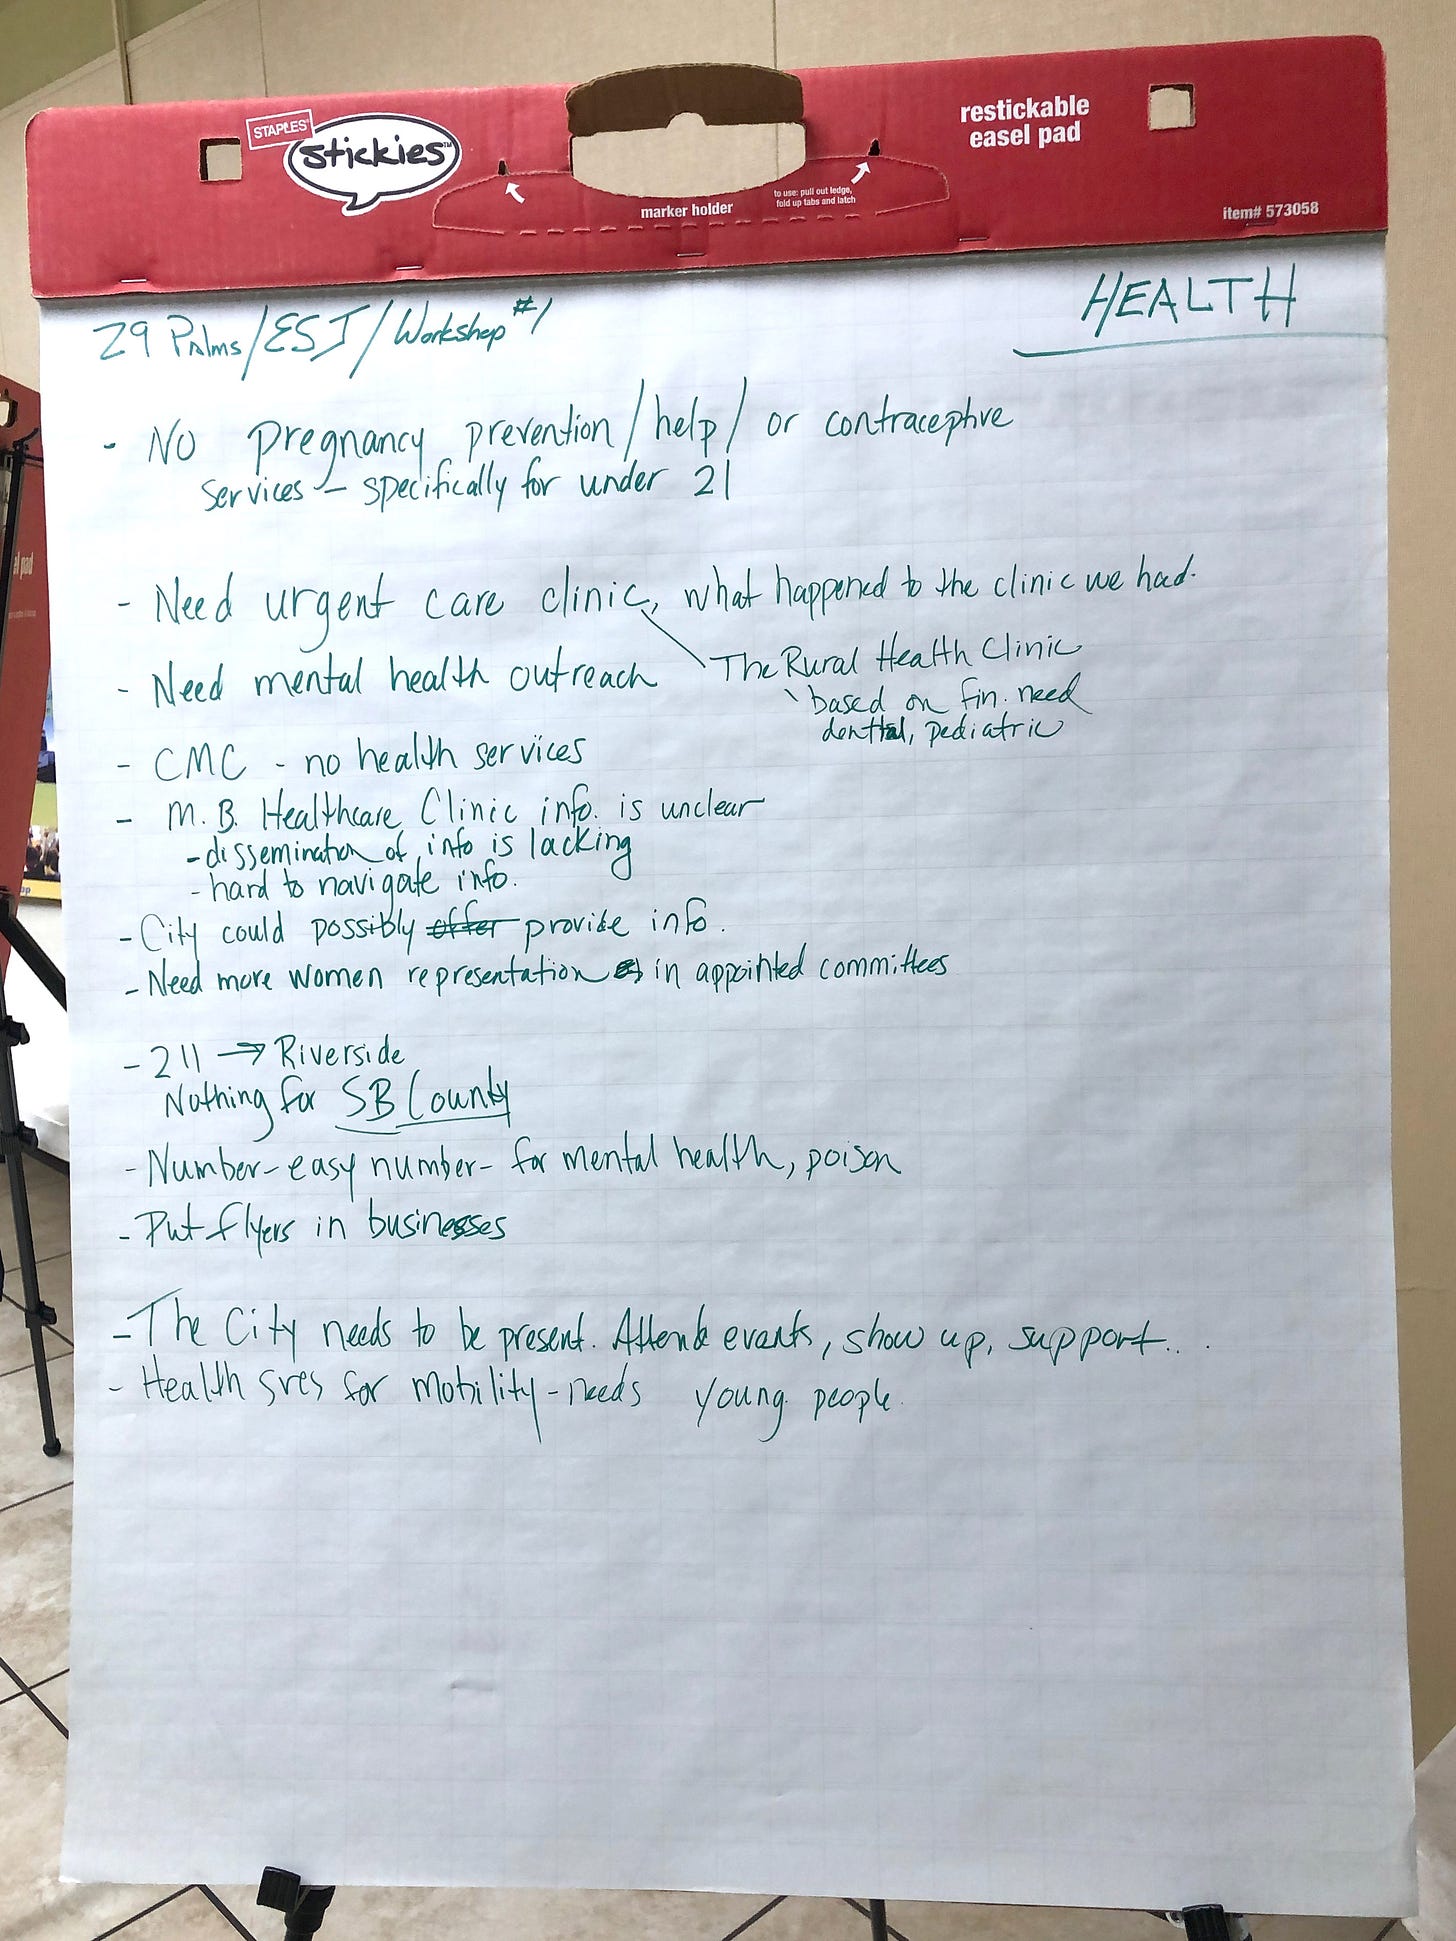 STAPLES
stickies™
restickable
easel pad
marker holder
to use: pull out ledge,
fold up tabs and latch
item# 573058
HEALTH
29 Palms/ESJ/Workshop #1
- No pregnancy prevention/help/ or contraceptive
services - specifically for under 21
- Need urgent care clinic, what happened to the clinic we had.
The Rural Health Clinic
based on fin. need
dental, pediatric
- Need mental health outreach
- CMC - no health services
- M.B. Healthcare Clinic info. is unclear
- dissemination of info is lacking
- hard to navigate info.
- City could possibly offer provide info.
- Need more women representation in appointed committees
- 211 → Riverside
Nothing for SB County
- Number - easy number - for mental health, poison
- Put flyers in businesses
- The City needs to be present. Attend events, show up, support...
- Health svcs for mobility - needs young people.